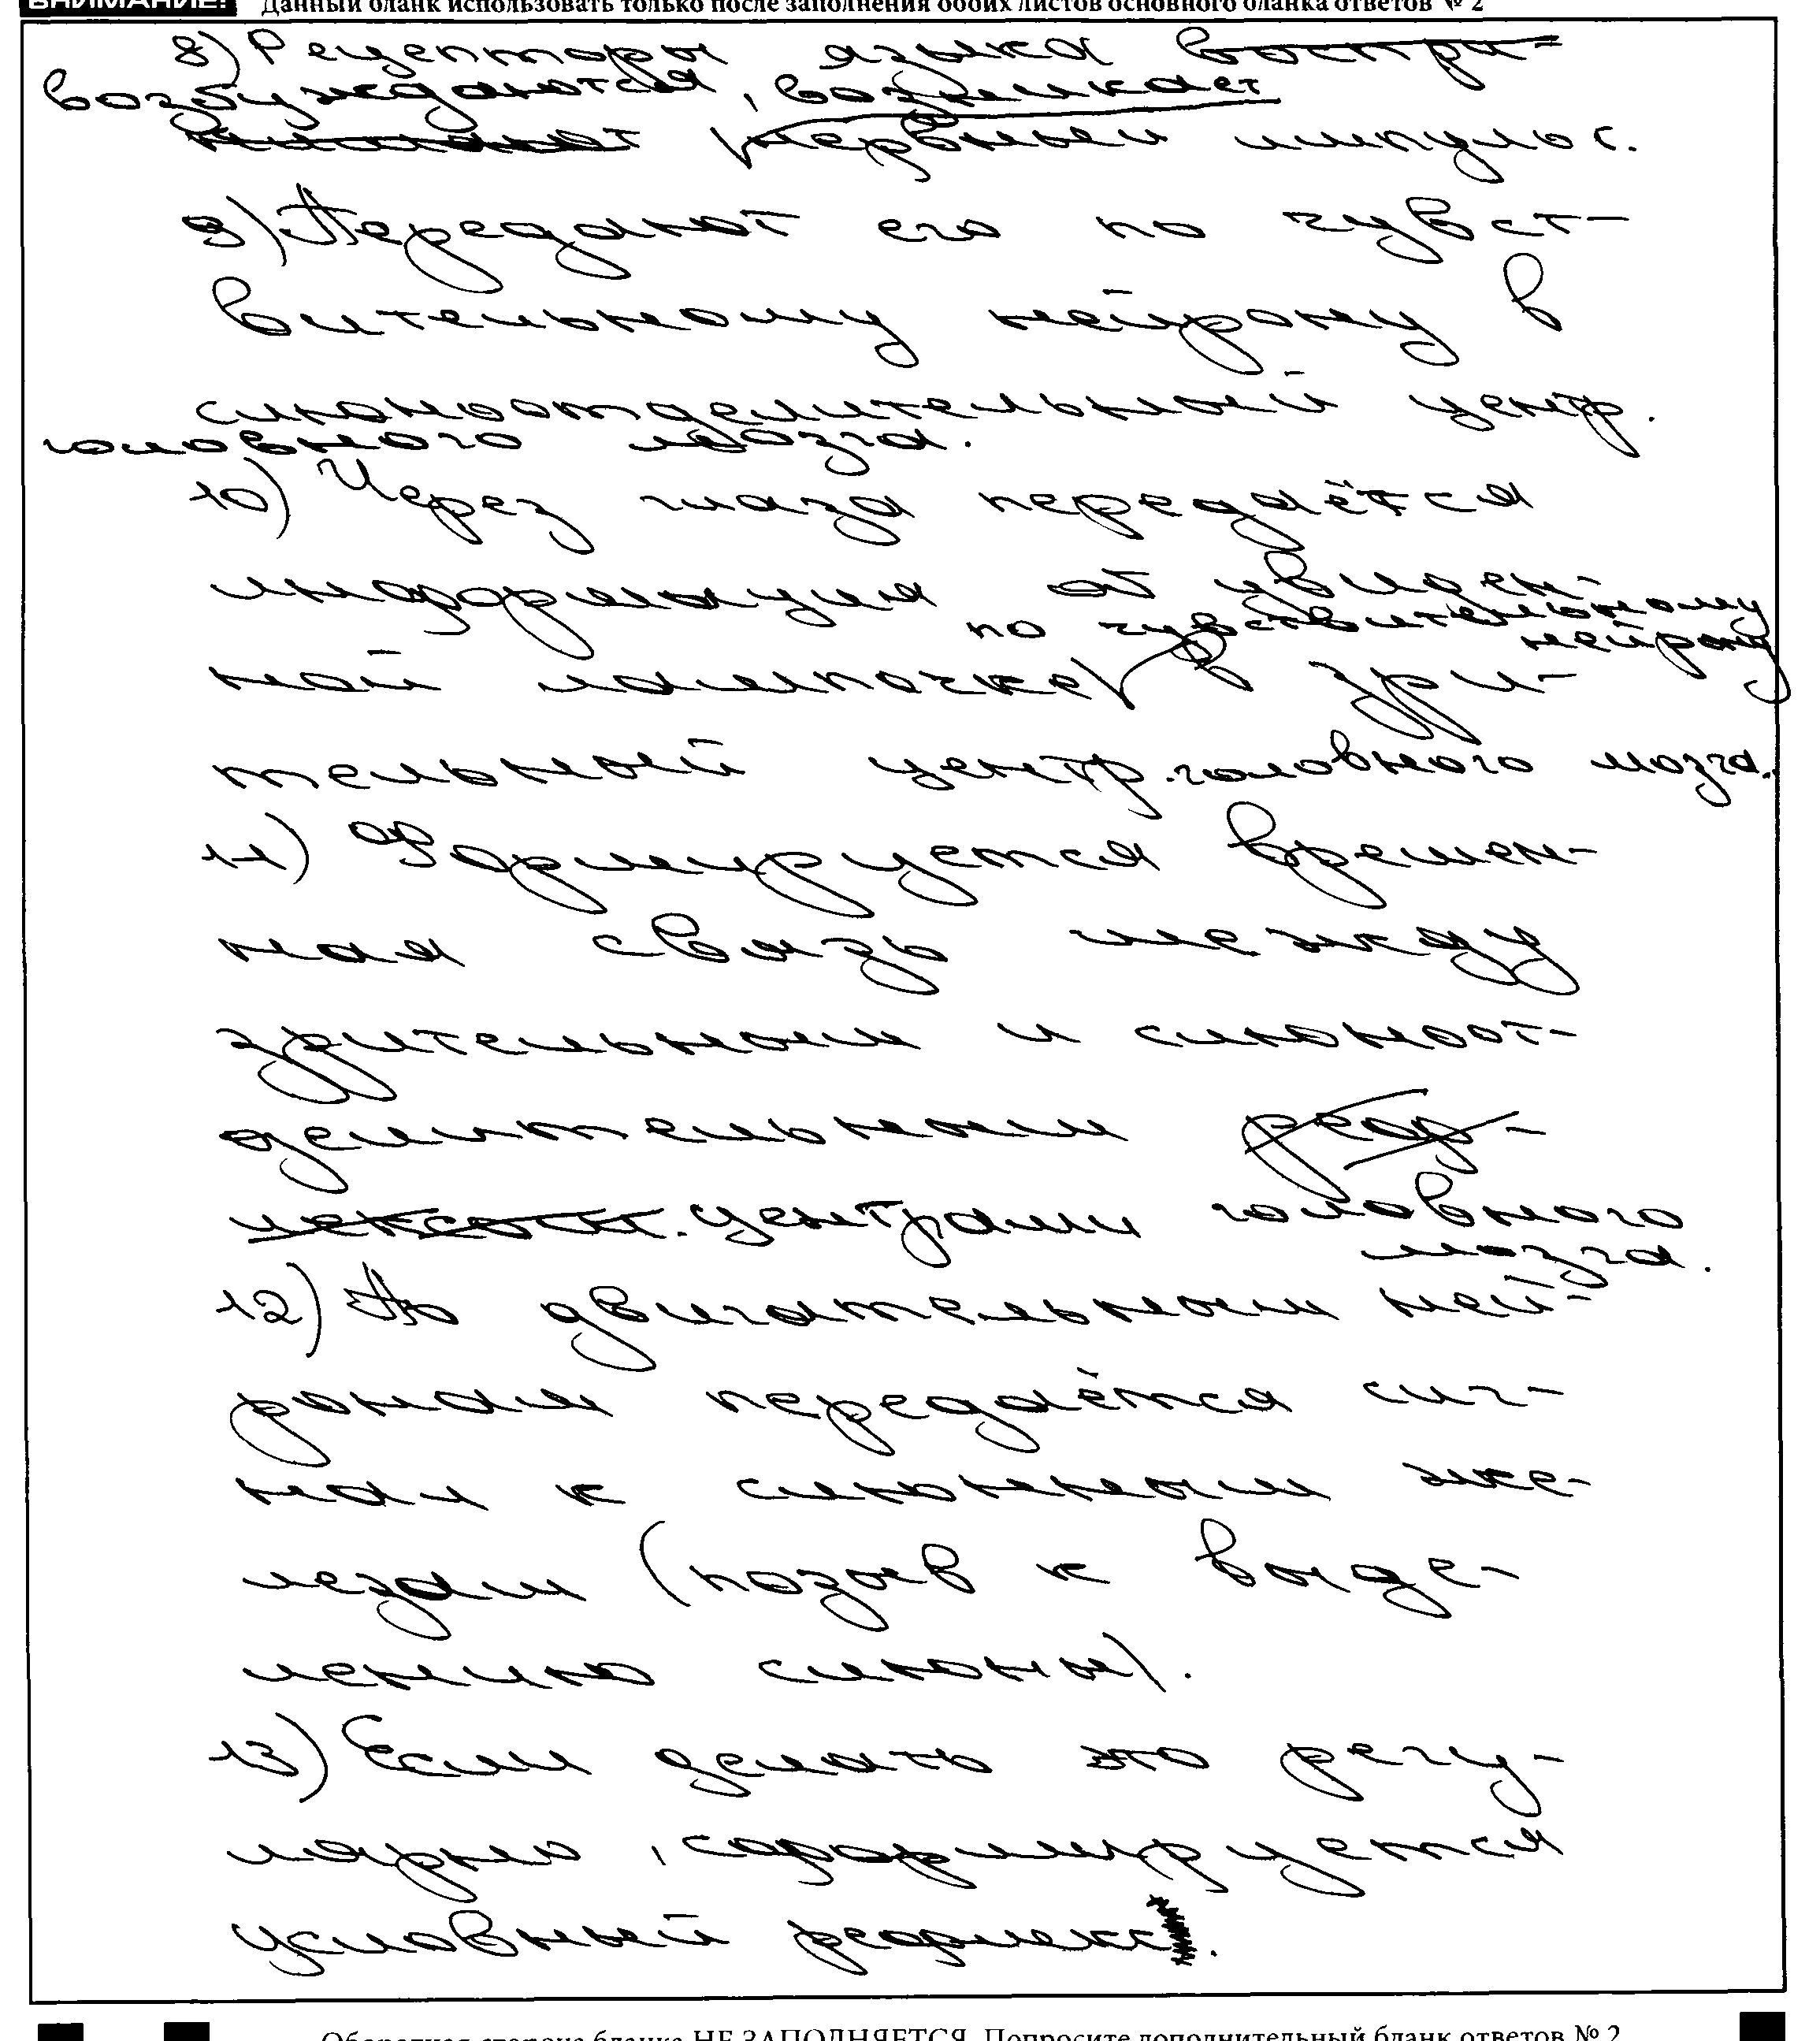 ВНИМАНИЕ! Данный бланк использовать только после заполнения обоих листов основного бланка ответов № 2
8) Рецепторы языка воспри-
возбуждаются, возникает
нервный импульс.
9) Передают его по чувст-
вительному нейрону в
слюноотделительный центр.
головного мозга.
10) Через глаза передаётся
информация об увиден-
по чувствительному
нейрону
ной лампочке в зри-
тельный центр. головного мозга.
11) Формируется времен-
ная связь между
зрительным и слюноот-
делительным реф-
лексом. центрами головного
мозга.
12) По двигательным ней-
ронам передаётся сиг-
нал к слюнным же-
лезам (позыв к выде-
лению слюны).
13) Если делать это регу-
лярно, сформируется
условный рефлекс.
Оборотная сторона бланка НЕ ЗАПОЛНЯЕТСЯ. Попросите дополнительный бланк ответов № 2